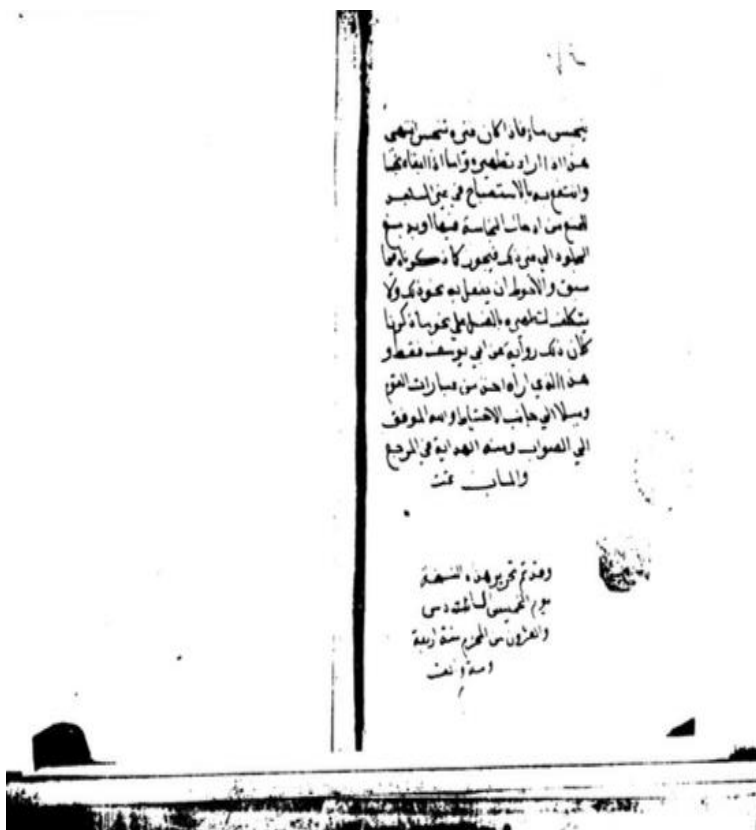 ينجس مازفاذا كان فى تنجس انتهى
هذا اذا اراد تطهيره واما اذا ابقاه نجسا
وانتفع به بالاستصباح في غير المسجد
للمنع من ادخال النجاسة فيها او بدبغ
الجلود الي غير ذلك فيجوز كما ذكرناه فيما
سبق والاحوط ان يفعل به نحو ذلك ولا
يتكلف لتطهيره بالغسل علي نحو ما ذكرنا
كان ذلك رواية عن ابي يوسف فقط و
هذا الذي اراه احذ من عبارات القوم
وميلا الي جانب الاحتياط والله الموفق
الي الصواب ومنه الهداية في المرجع
والمآب تمت
وقد تم تحرير هذه النسخة
يوم الخميس السادس
والعشرون من المحرم سنة اربعة
ومية و الف